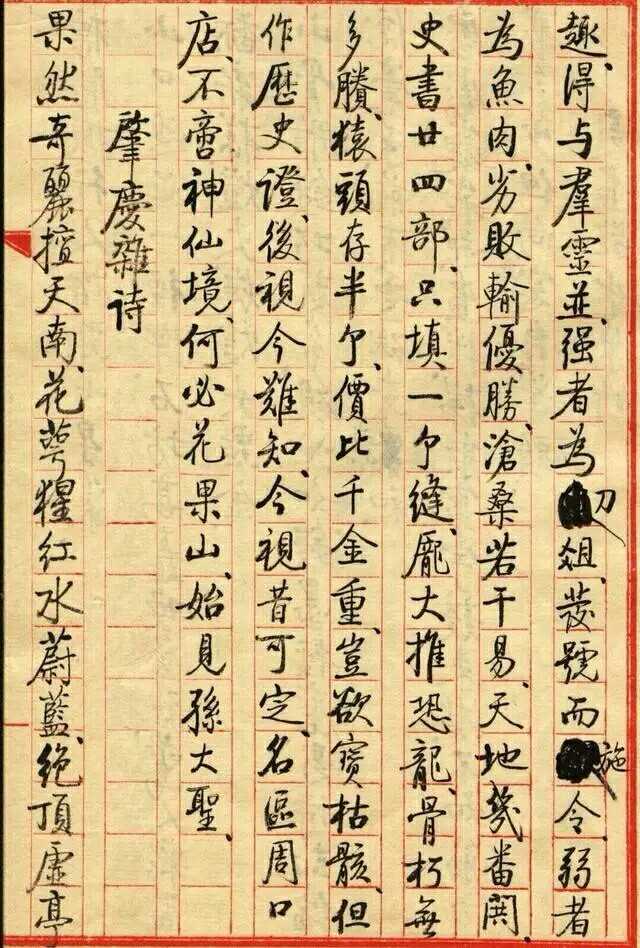 趣、得与羣靈並、强者為刀俎、發號而施令、弱者
為魚肉、劣敗輸優勝、滄桑若干易、天地幾番閧、
史書廿四部、只填一个縫、龐大推恐龍、骨朽無
多賸、猿頭存半个、價比千金重、豈欲寶枯骸、但
作歷史證、後視今難知、今視昔可定、名區周口
店、不啻神仙境、何必花果山、始見孫大聖、
肇慶雜诗
果然奇麗擅天南、花萼猩红水蔚藍、绝頂虛亭